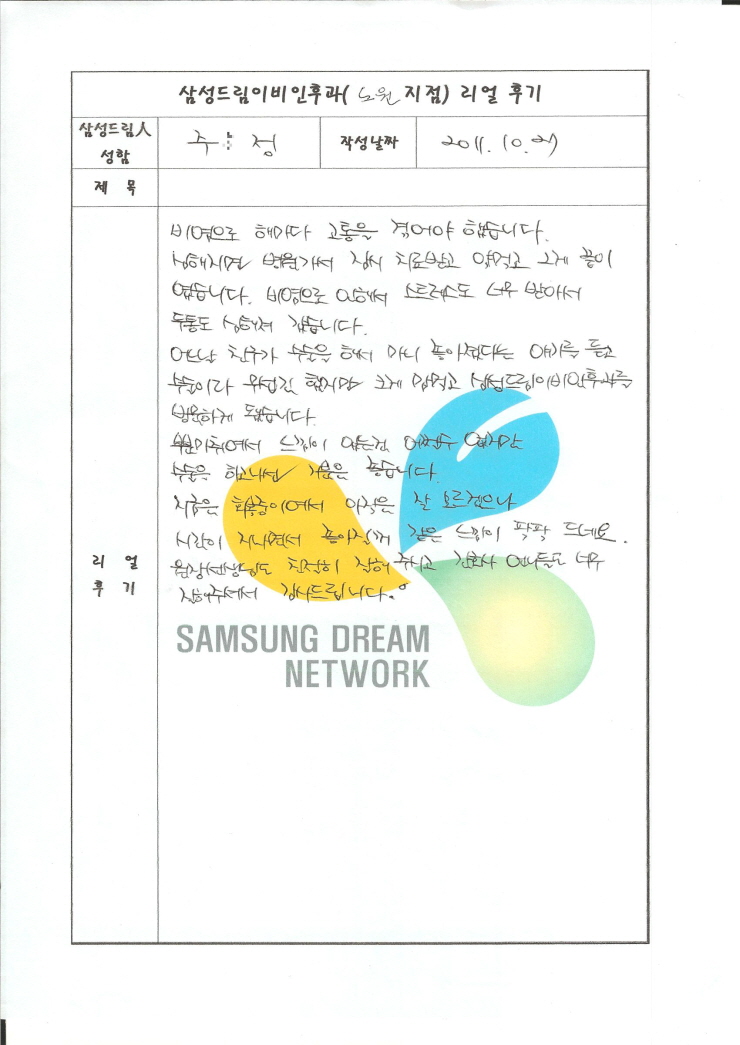 삼성드림이비인후과(노원지점) 리얼 후기
삼성드림人 성함
주 정
작성날짜
2011. 10. 27
제 목
비염으로 해마다 고통을 겪어야 했습니다.
심해지면 병원가서 잠시 치료받고 약먹고 그게 끝이
였습니다. 비염으로 인해서 스트레스도 너무 받아서
두통도 심해져 갔습니다.
어느날 친구가 수술을 해서 마니 좋아졌다는 얘기를 듣고
수술이라 무섭긴 했지만 크게 맘먹고 삼성드림이비인후과를
방문하게 됐습니다.
부분마취여서 느낌이 있는건 어쩔수 없지만
수술은 하고나선 기분은 좋습니다.
지금은 회복중이여서 아직은 잘 모르겠으나
시간이 지나면서 좋아질꺼 같은 느낌이 팍팍 드네요.
원장선생님도 친절히 잘해 주시고 간호사 언니들도 너무
잘해주셔서 감사드립니다.
리 얼
후 기
SAMSUNG DREAM
NETWORK